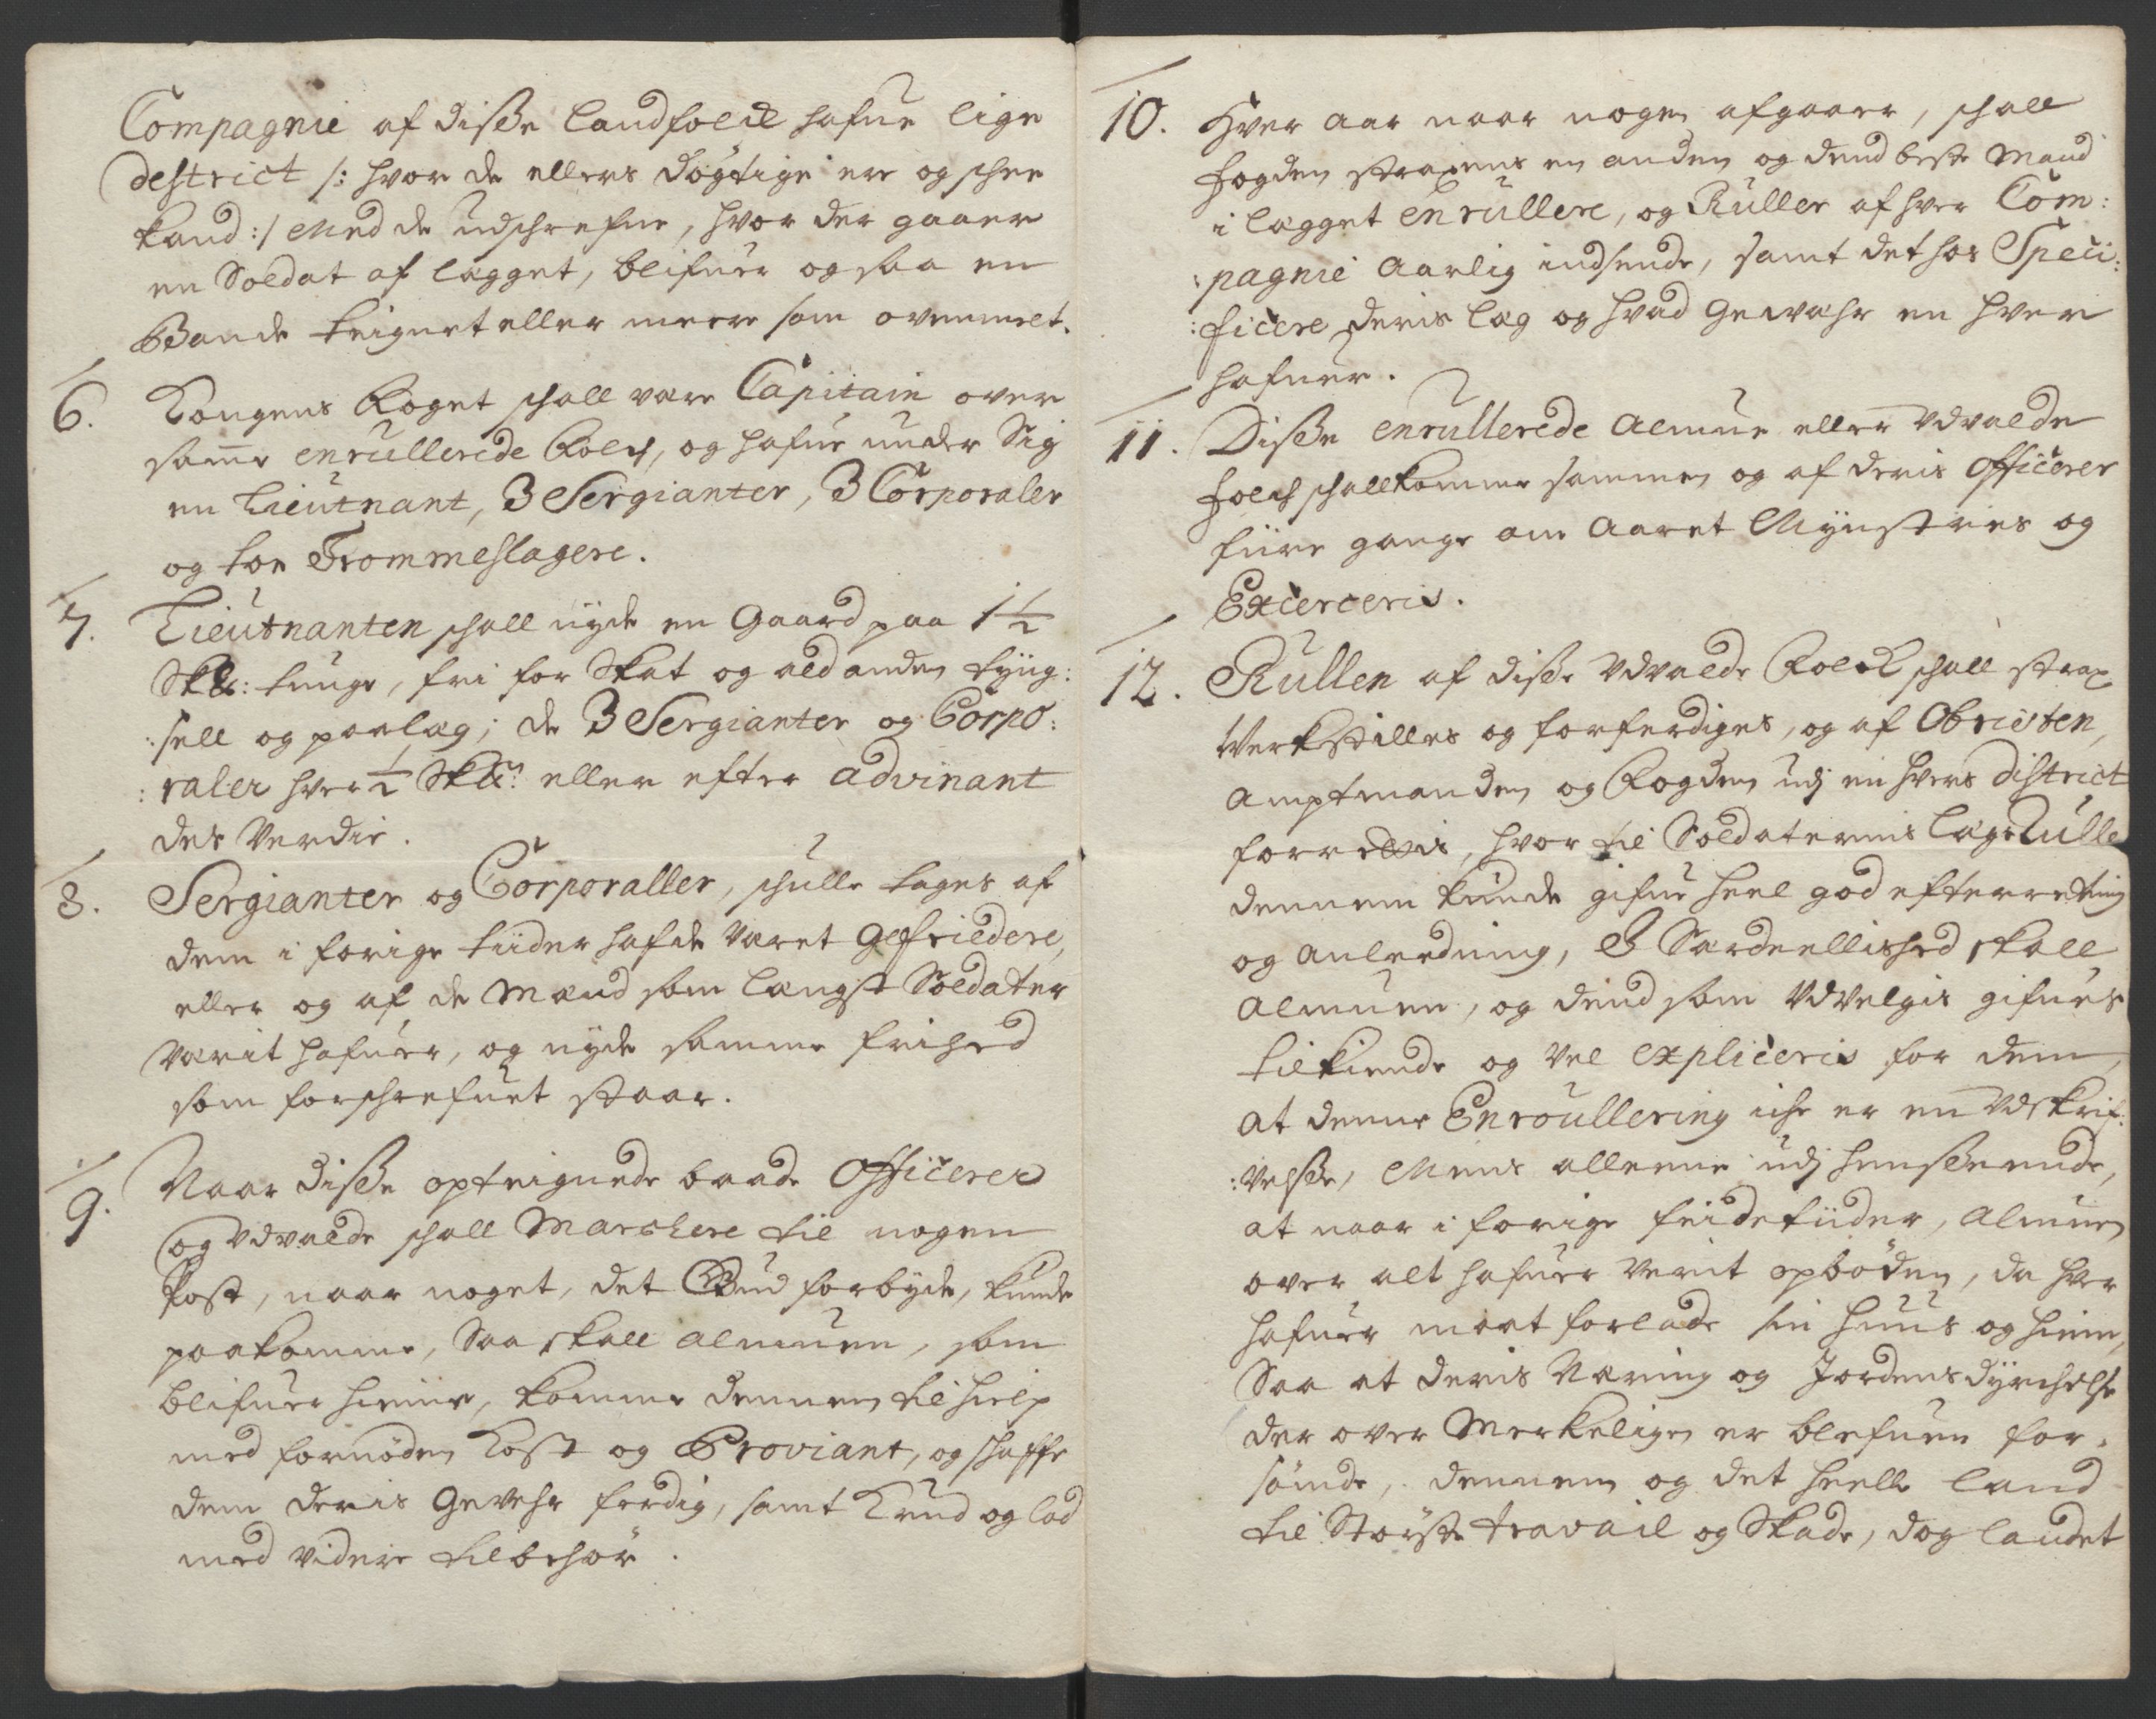 Compagnie af disse landfolck hafue lige
destrict /: hvor de ellers dögtige ere og schee
kand :/ Med de udschrefne, hvor der gaaer
en Soldat af lægget, blifuer ogsaa en
Bonde teignet eller meere som ovenmelt.
6. Kongens Foget schall være Capitain over
samme enrullerede Folch, og hafue under Sig
en Lieutnant, 3 Sergianter, 3 Corporaler
og toe Trommeslagere.
7. Lieutnanten schall nyde en Gaard paa 1½
Skll: tunge, fri for Skat og ald anden tyng:
:sell og paalæg; de 3 Sergianter og Corpo:
:raler hver ½ Skll: eller efter advinant
des Verdie.
8. Sergianter og Corporaller, schulle tages af
dem i forige tiider hafde Været Gefriedere,
eller og af de Mænd som længst Soldater
Værit hafuer, og nyde samme frihed
som forschrefuet staar.
9. Naar disse opteignede baade Officerer
og Udvalde schall Marchere til nogen
Post, naar noget, det Gud forbyde, kunde
paakomme, Saa skall almuen, som
blifuer hiemme, komme dennem til hielp
med fornöden Kost og Proviant, og schaffe
dem deris Gevehr ferdig, samt Krud og lod
med videre tilbehör.
10. Hver Aar naar nogen afgaaer, schall
fogden straxens en anden og dend beste Mand
i lægget enrullere, og Ruller af hver Com:
:pagnie Aarlig indsende, samt det hos Speci:
:ficere deris læg og hvad Gewæhr en hver
hafuer.
11. Disse enrullerede Almue eller Udvalde
folch schall komme sammen og af deris Officerer
fiire gange om Aaret Mynstres og
Exerceris.
12. Rullen af disse Udvalde Folck schall strax
Verkstilles og forferdiges, og af Obristen,
Amptmanden og Fogden udj en hvers district
forrettis, hvor til Soldaternis lægs Rulle
dennem kunde gifue heel god efterretning
og anleedning, I Særdeellished skall
Almuen, og dend som Udvelgis gifues
tilkiende og Vel expliceris for dem,
At denne Enroullering iche er en Udskrif:
:velsse, Mens alleene udj henseende,
at naar i forige feidetiider, Almuen
over alt hafuer Verit opböden, da hver
hafuer maat forlade sin Huus og hiem,
Saa at deris Næring og Jordens dyrchelse
der over Merkeligen er blefuen for:
sömde, dennem og det heelle land
til Störste travail og Skade, dog landet